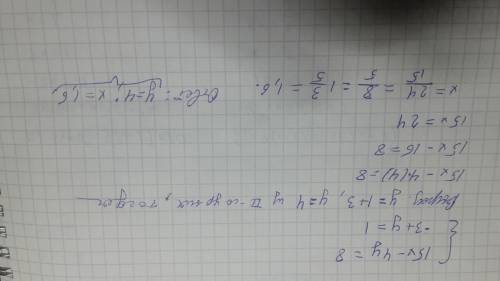 { 15x - 4y = 8
-3 + y = 1
Выразим y = 1 + 3, y = 4 из II-го ур-ния, тогда
15x - 4(4) = 8
15x - 16 = 8
15x = 24
x = 24/15 = 8/5 = 1 3/5 = 1,6.
Ответ: y = 4; x = 1,6